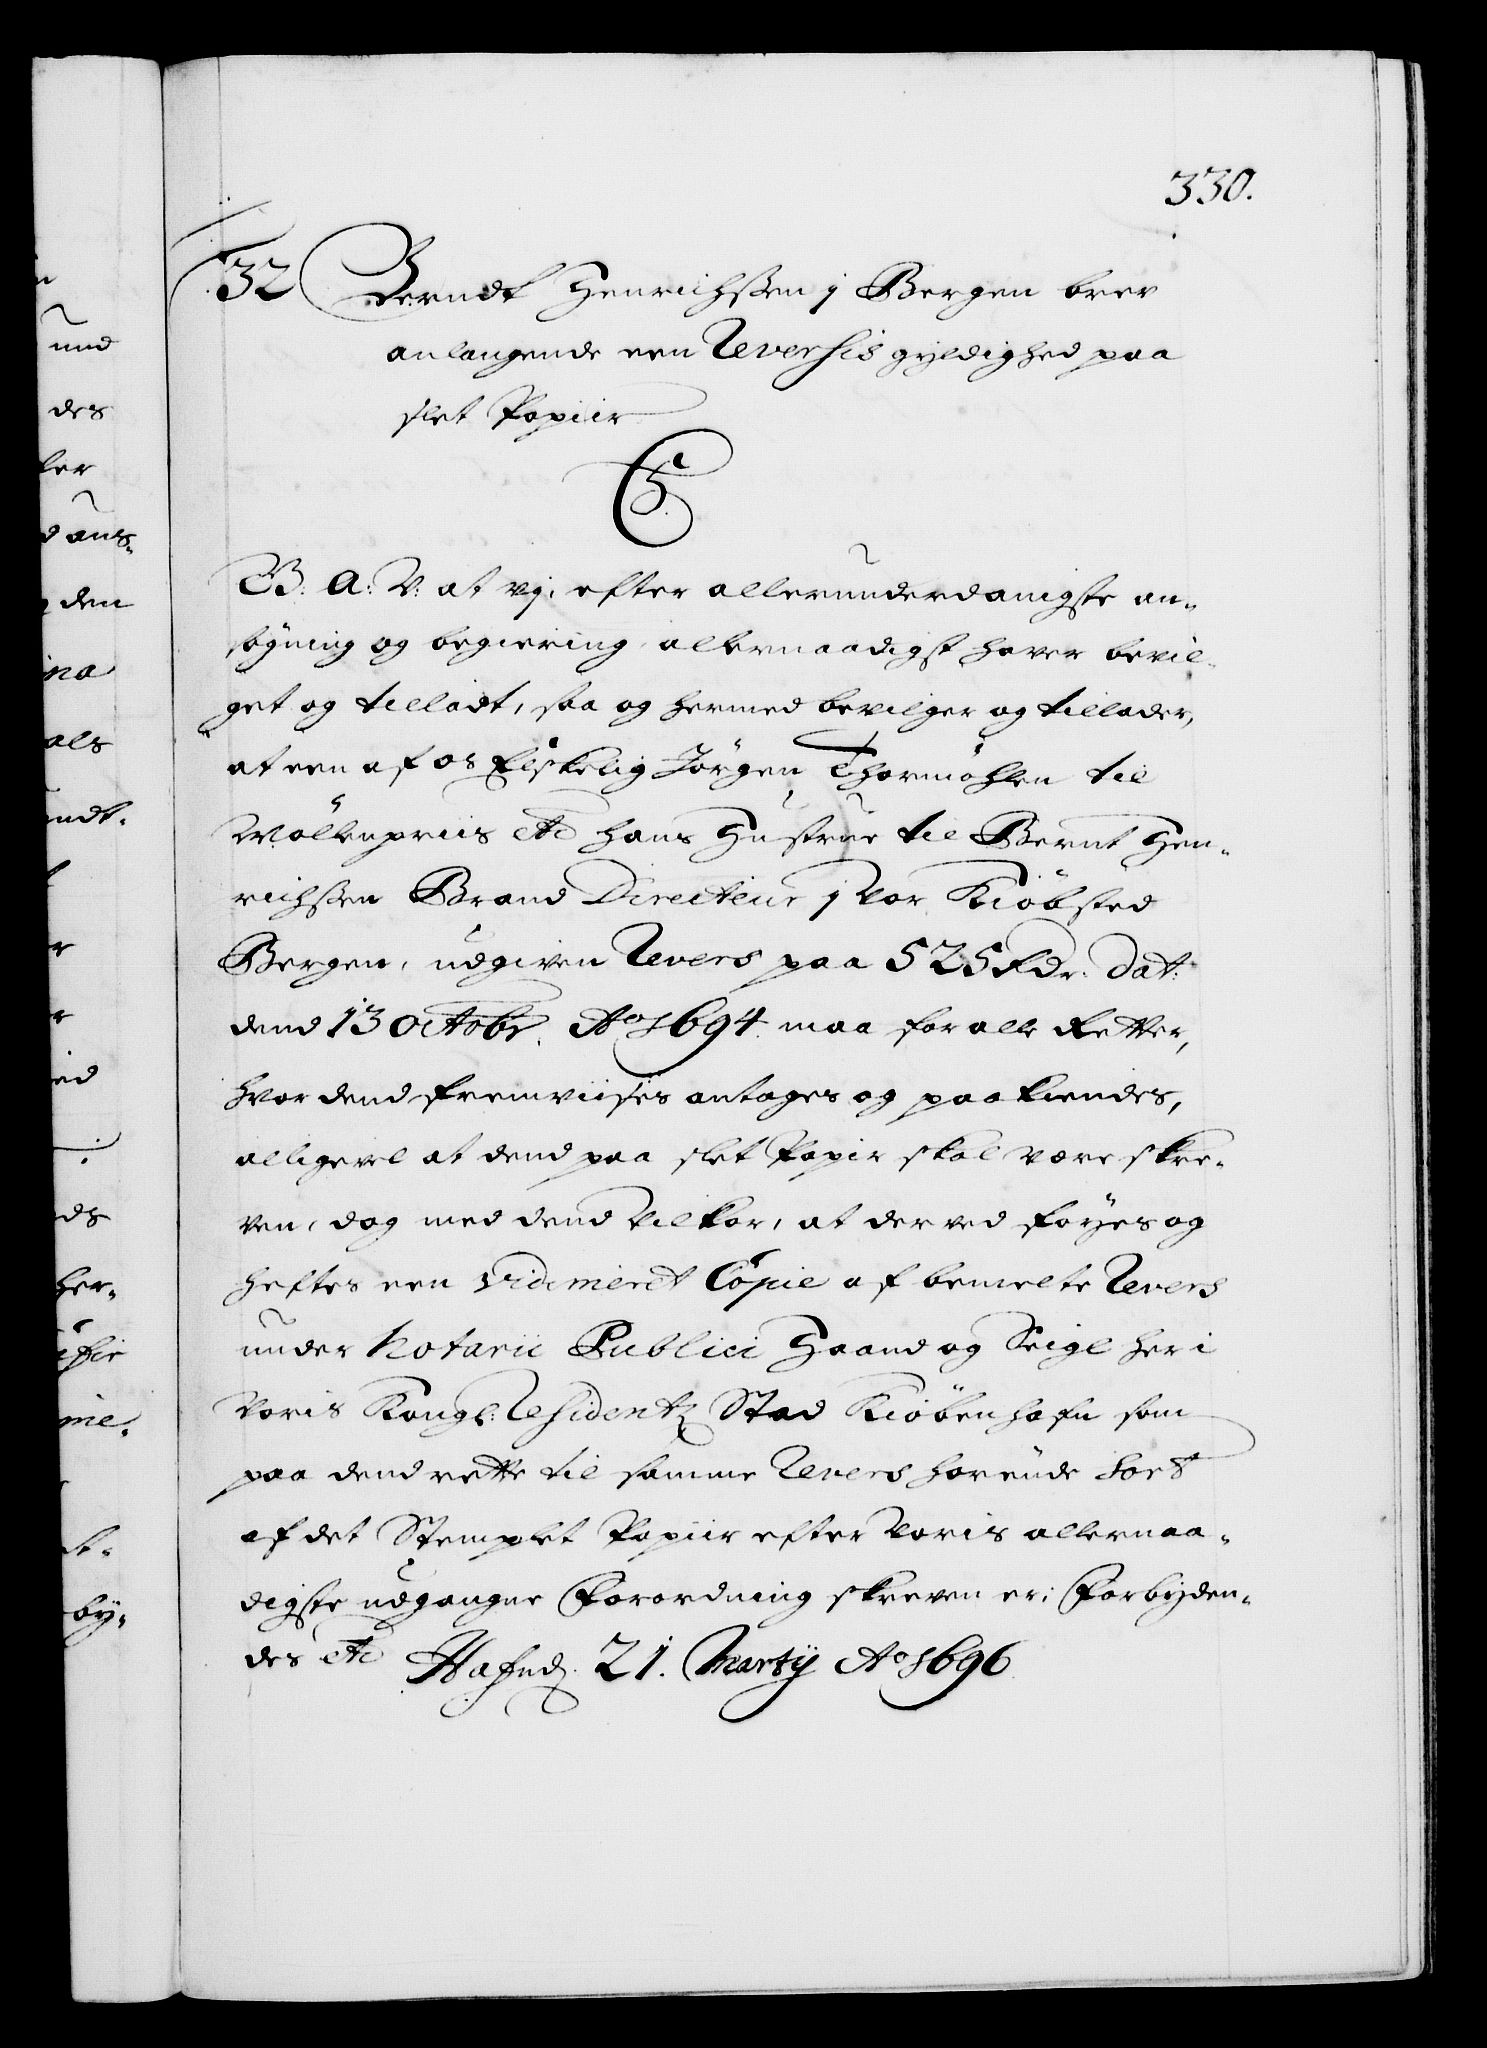 330.
32 Berndt Henrichßen j Bergen brev
anlangende een Reversis gyldighed paa
slet Papiir
C5.
G: A: V: at vj, efter allerunderdanigste an-
søgning og begiering, allernaadigst haver bevil-
get og tilladt, saa og hermed bevilger og tillader,
at een af os Elskelig Jörgen Thormöhlen til
Wøllenpriis etc hans Hustrue til Bernt Hen-
richßen Brand Directeur j Vor Kiöbsted
Bergen, udgiven Revers paa 525 Rdr. dat:
dend 13 Octobr. Ao 1694. maa for alle Retter,
hvor dend fremviises antages og paakiendes,
alligevel at dend paa slet Papir skal være skre-
ven, dog med dend Vilkor, at derved föyes og
heftes een Vidimeret Copie af bemelte Revers
under Notarii Publici Haand og Seigl her i
Voris Kongl: Residentz Stad Kiöbenhafn som
paa dend rette til samme Revers hörende Sort
af det Stemplet Papiir efter Voris allernaa-
digste udgangne Forordning skreven er; Forbyden-
des etc Hafniæ. 21. Martij Ao 1696
und
des
ler
den
ina
als
ndt.
r
r
ed
ds
her-
me.
by-